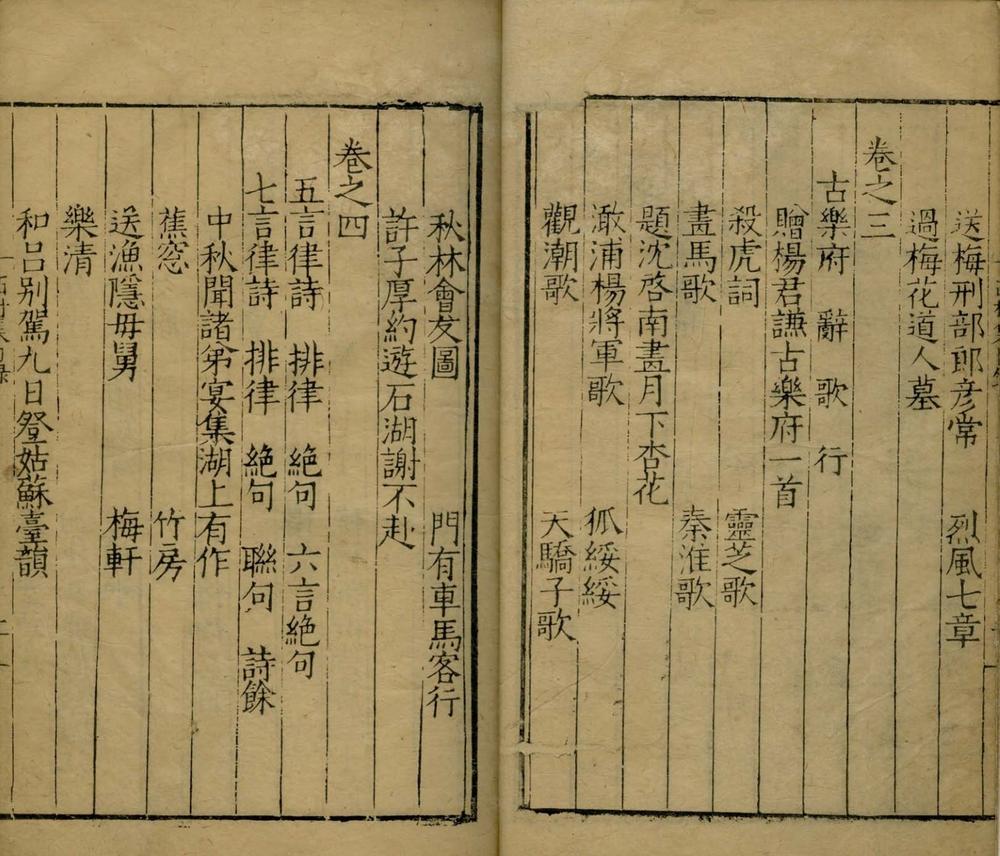 送梅刑部郎彥常 烈風七章
過梅花道人墓
卷之三
古樂府 辭 歌 行
贈楊君謙古樂府一首
殺虎詞 靈芝歌
畫馬歌 秦淮歌
題沈啓南畫月下杏花
澉浦楊將軍歌 狐綏綏
觀潮歌 天驕子歌
秋林會友圖 門有車馬客行
許子厚約遊石湖謝不赴
卷之四
五言律詩 排律 絕句 六言絕句
七言律詩 排律 絕句 聯句 詩餘
中秋聞諸弟宴集湖上有作
蕉窓 竹房
送漁隱毋舅 梅軒
樂清
和呂别駕九日登姑蘇臺韻